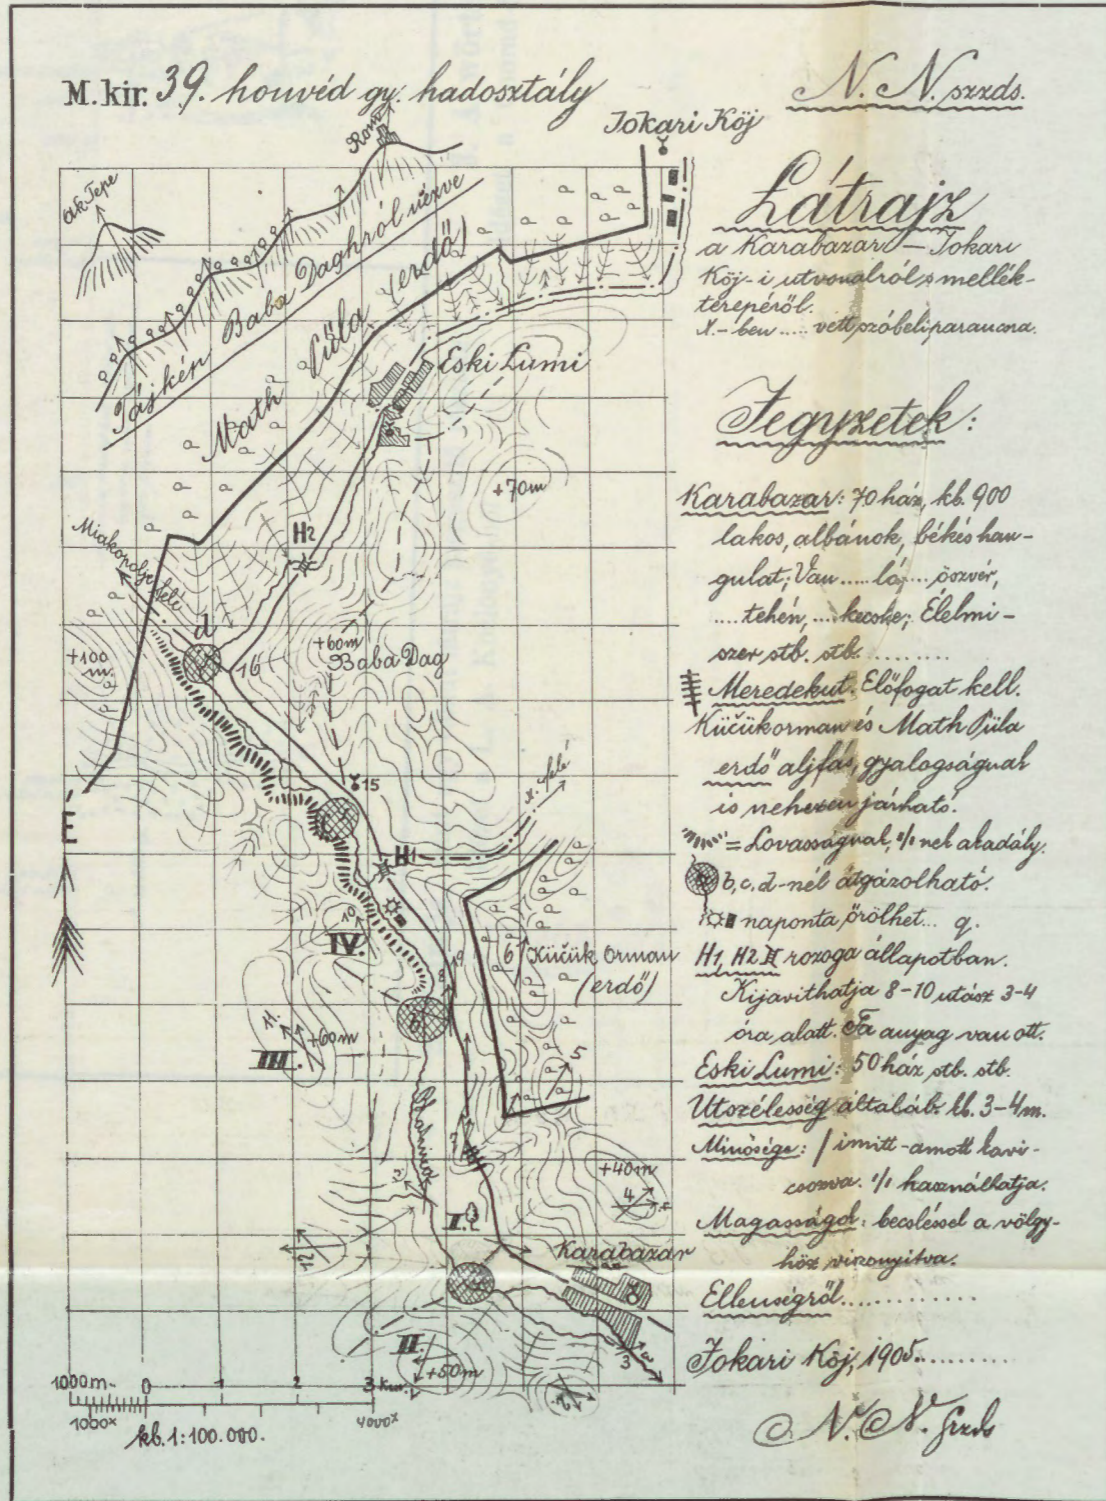 M. kir. 39. honvéd gy. hadosztály
N. N. szzds.
Jokari Köj
Rom
Ak Tepe
Tájkép Baba Daghról nézve
Math Püla (erdő)
Eski Lumi
+70m
H2
Miakopolje felé
d
16
+60m
Baba Dag
+100
m.
15
É
H1
x. felé
10
IV.
9
8
6
Küčük Orman
(erdő)
b
11.
+60m
III.
5
7
+40m
4
I.
12
Karabazar
II.
+50m
3
a
2
1000m.
0
1
2
3 Km.
1000x
4000x
kb. 1:100.000.
Látrajz
a Karabazar — Jokari
Köj-i utvonalról s mellék-
terepéről.
X.-ben ..... vett szóbeli parancsra.
Jegyzetek:
Karabazar: 70 ház, kb. 900
lakos, albánok, békés han-
gulat; Van ..... ló, .... öszvér,
.... tehén, .... kecske; Élelmi-
szer stb. stb. .........
Meredekut. Előfogat kell.
Küčükorman és Math Püla
erdő aljfás, gyalogságnak
is nehezen járható.
= Lovasságnak, %nek akadály.
b, c, d-nél átgázolható.
naponta őrölhet... q.
H1, H2 rozoga állapotban.
Kijavithatja 8-10 utász 3-4
óra alatt. Fa anyag van ott.
Eski Lumi: 50 ház stb. stb.
Utszélesség általáb. kb. 3-4m.
Minősége: imitt-amott kavi-
csozva. % használhatja.
Magasságok: becsléssel a völgy-
höz viszonyitva.
Ellenségről..............
Jokari Köj, 1905..........
N. N. szzds